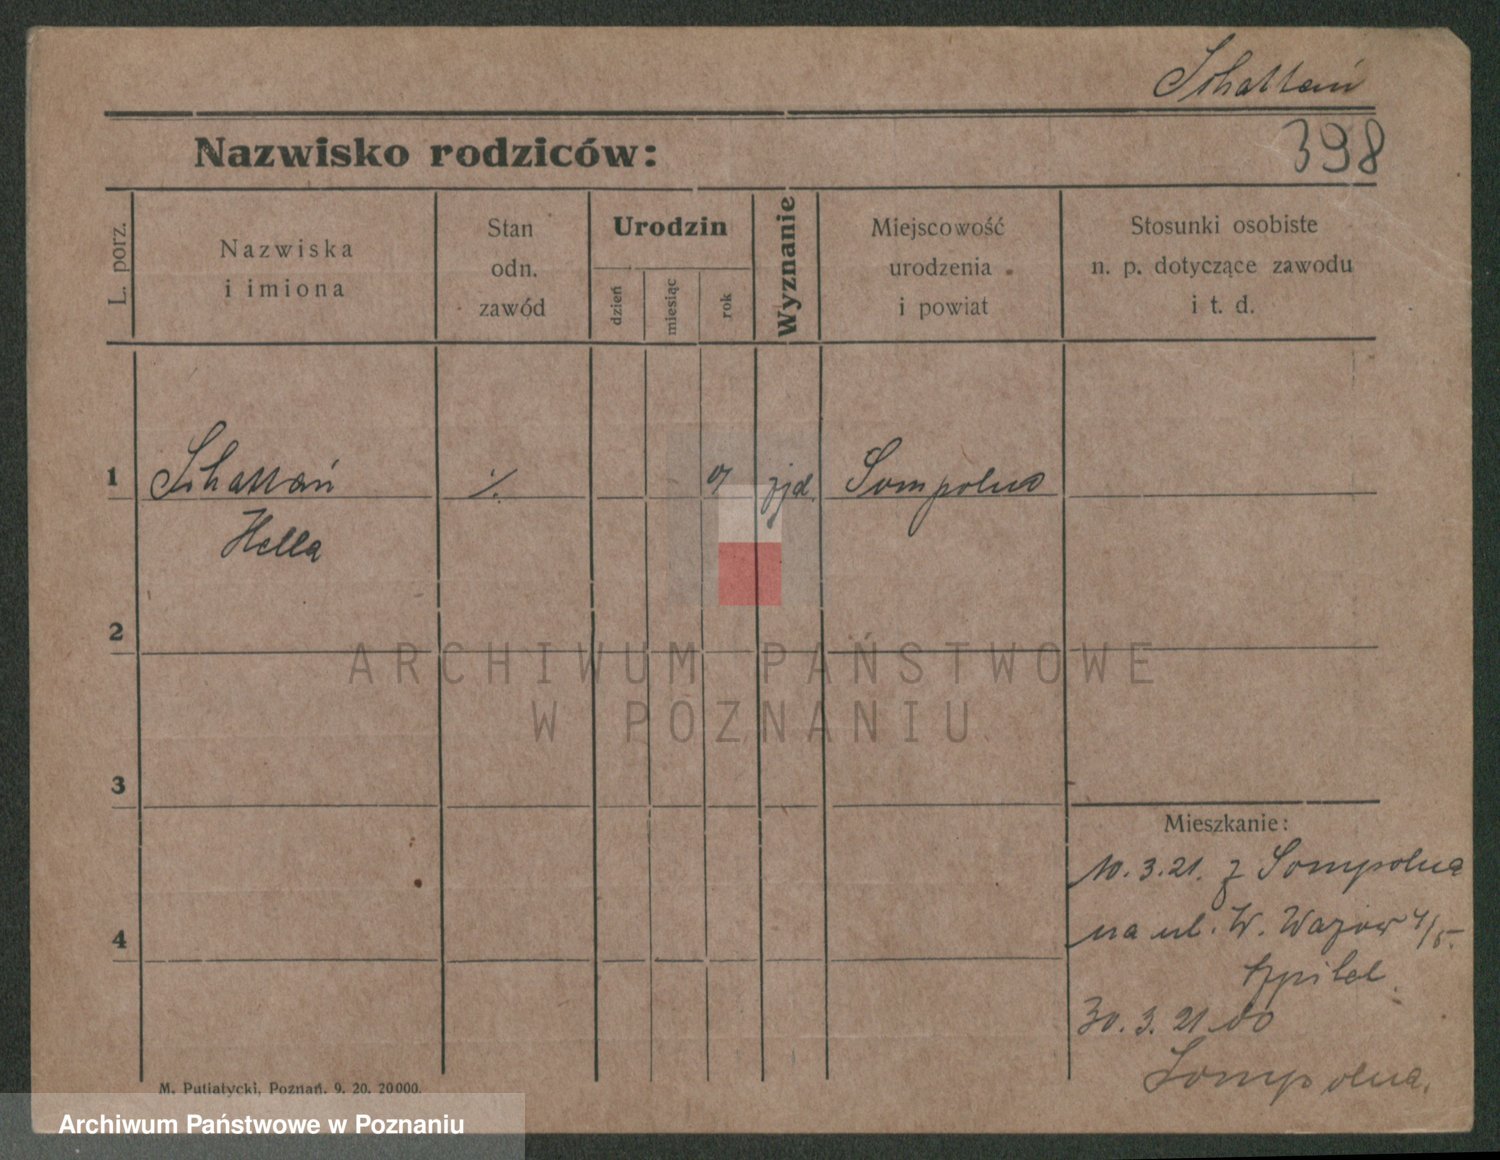 Schattań
398
Nazwisko rodziców:
L. porz.
Nazwiska
i imiona
Stan
odn.
zawód
Urodzin
dzień
miesiąc
rok
Wyznanie
Miejscowość
urodzenia
i powiat
Stosunki osobiste
n. p. dotyczące zawodu
i t. d.
1 Schattań ./. żyd. Sompolno
Hella
2
3
4
Mieszkanie:
10.3.21. z Sompolna
na ul. W. Wazów 4/5.
szpital.
30.3.21 do
Sompolna.
M. Putiatycki, Poznań. 9. 20. 20000.
ARCHIWUM PAŃSTWOWE
W POZNANIU
Archiwum Państwowe w Poznaniu